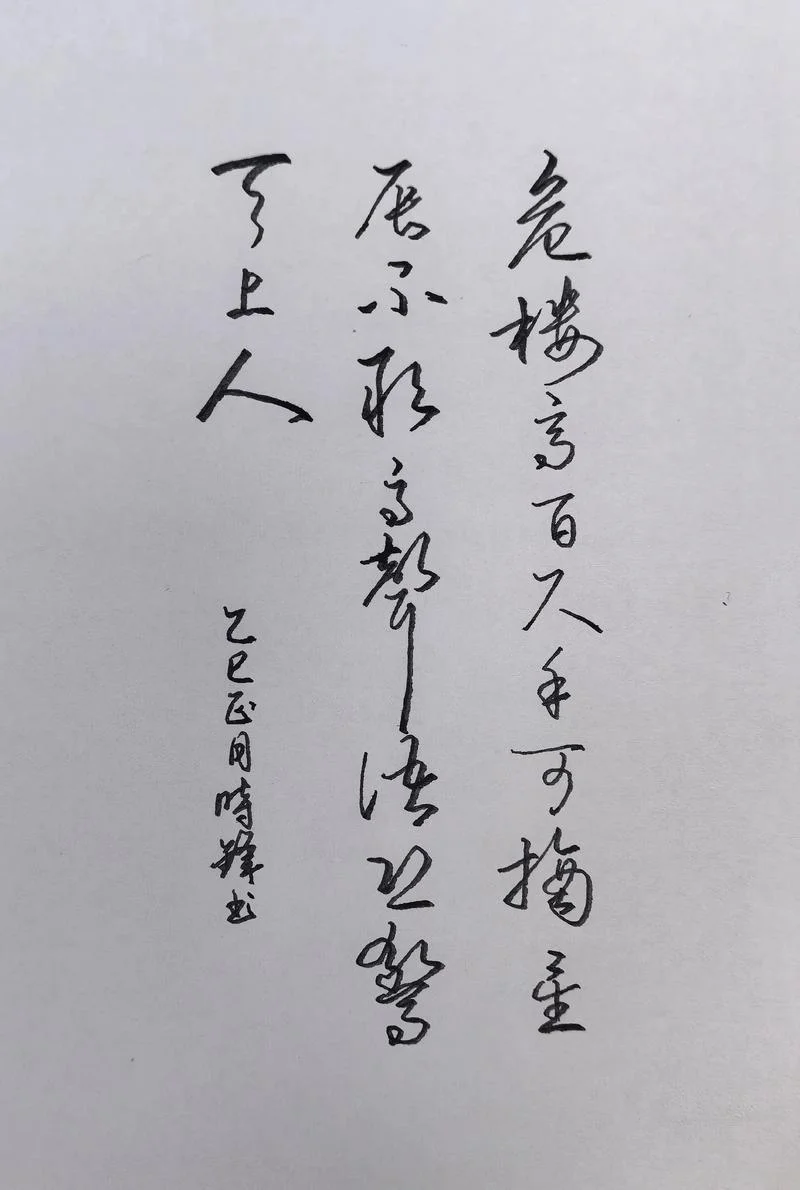 危楼高百尺手可摘星
辰不敢高聲语恐驚
天上人
乙巳正月時鋒书